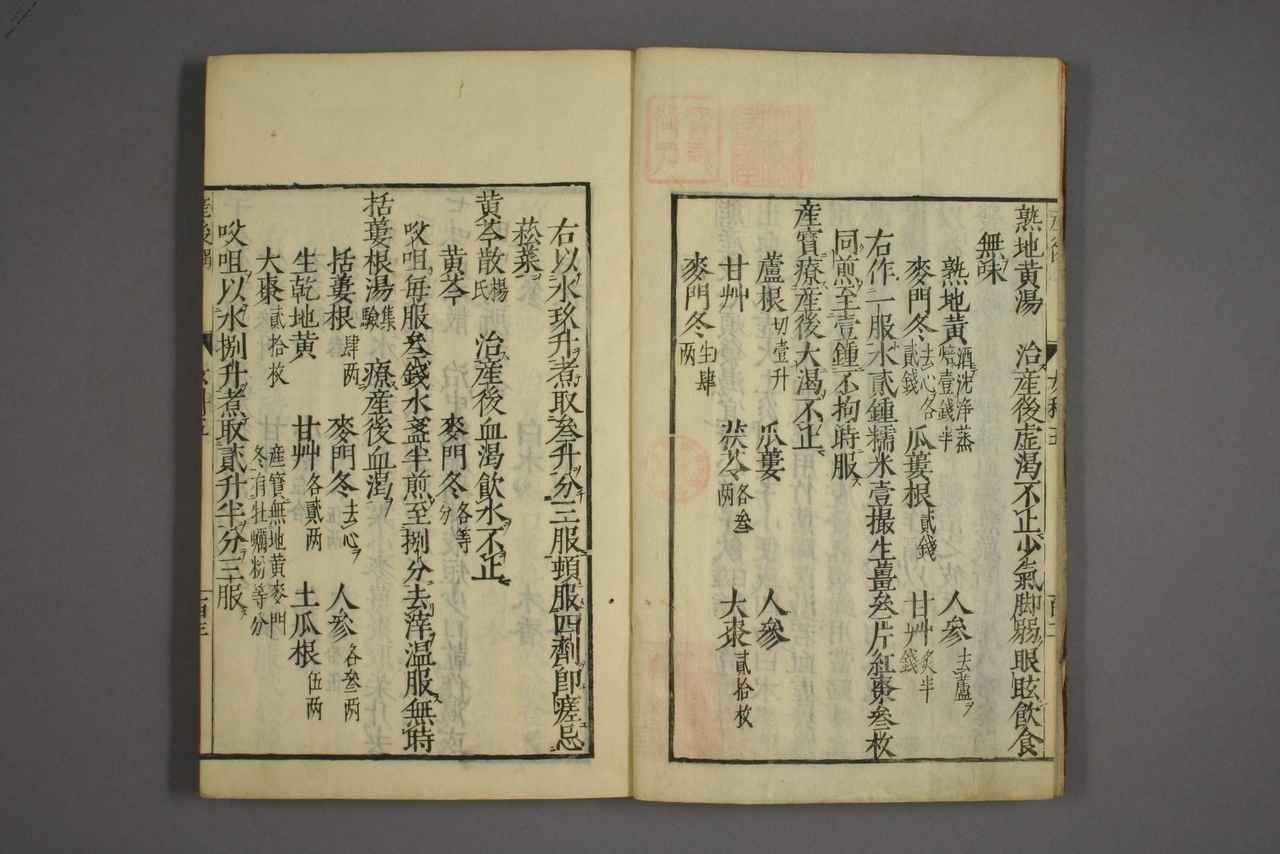 熟地黄湯 治産後虚渇不止少氣脚弱眼眩飲食
無味
熟地黄酒洗浄蒸焙壹錢半 人參去蘆
麥門冬去心各貳錢 瓜蔞根貳錢 甘艸炙半錢
右作一服水貳鍾糯米壹撮生薑叄片紅棗叄枚
同煎至壹鍾不拘時服
産寶療産後大渇不止
蘆根切壹升 瓜蔞 人參
甘艸 茯苓各叄两 大棗貳拾枚
麥門冬生肆两
右以水玖升煮取叄升分三服頓服四劑即瘥忌
菘菜
黄芩散楊氏 治産後血渇飲水不止
黄芩 麥門冬各等分
㕮咀毎服叄錢水盞半煎至捌分去滓温服無時
括蔞根湯集驗 療産後血渇
括蔞根肆两 麥門冬去心 人參各叄两
生乾地黄 甘艸各貳两 土瓜根伍两
大棗貳拾枚 産寶無地黄麥門冬有牡蠣粉等分
㕮咀以水捌升煮取貳升半分三服